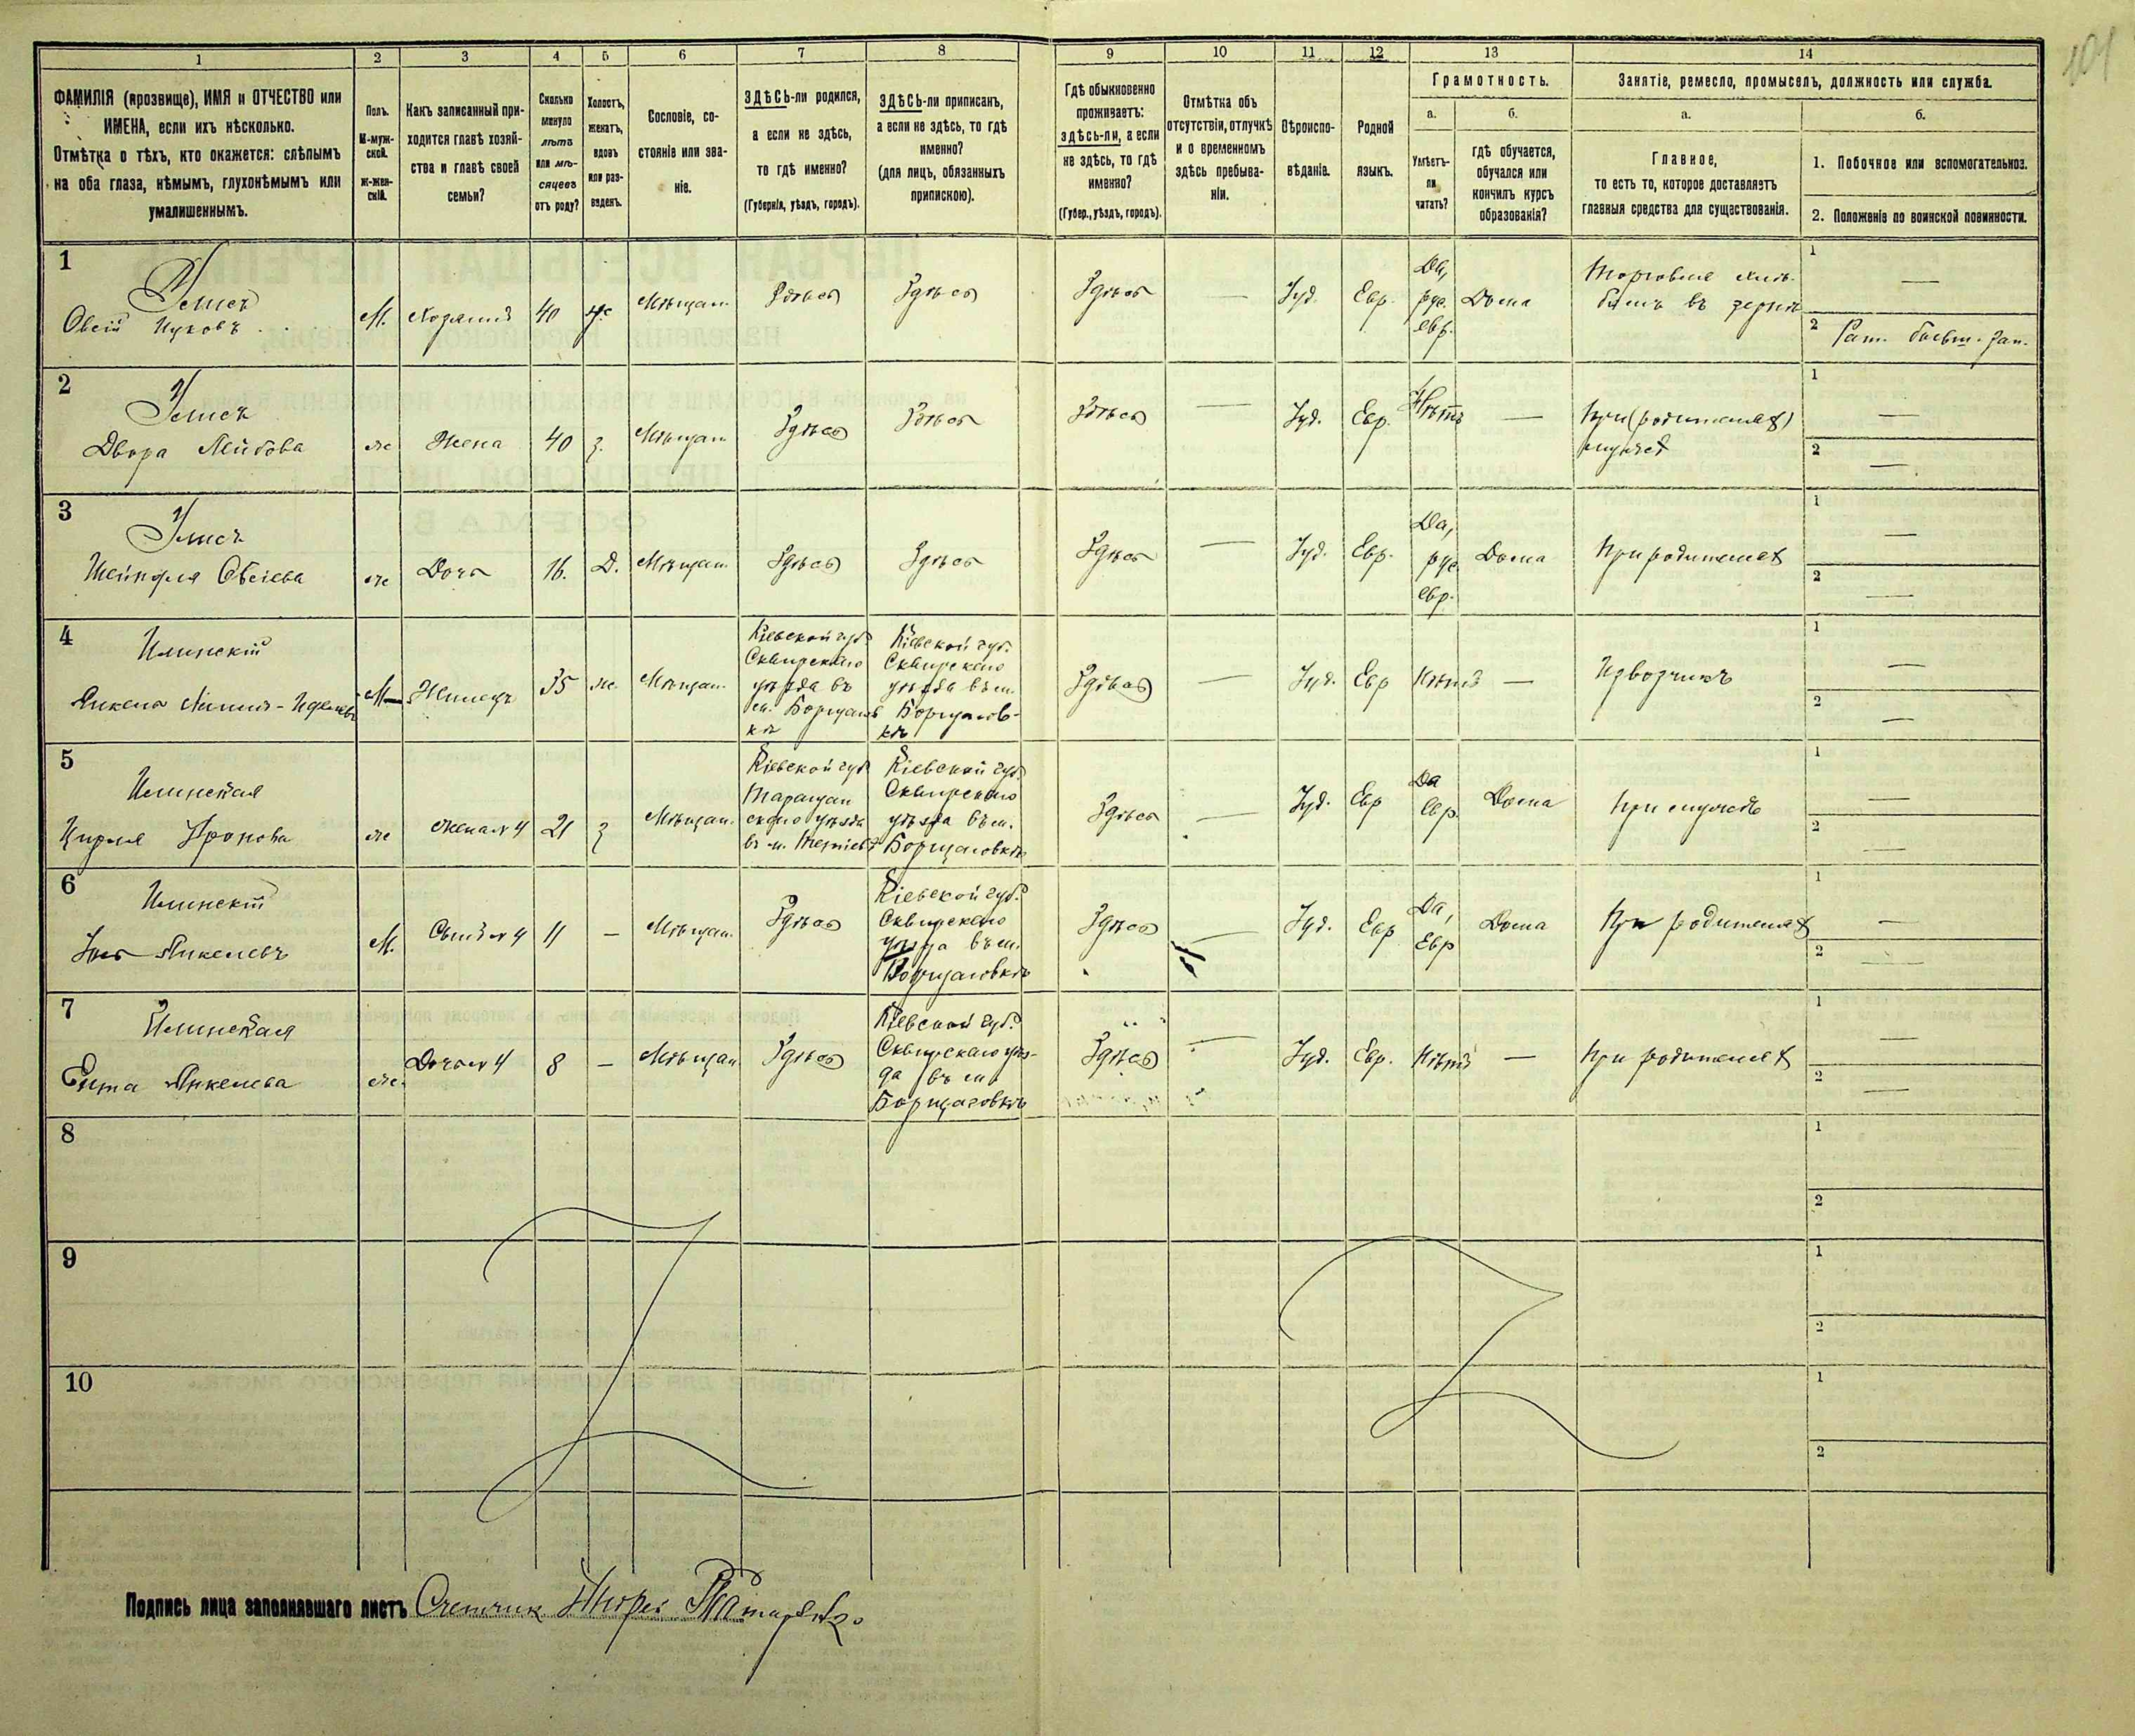 1 2 3 4 5 6 7 8 9 10 11 12 13 14
ФАМИЛІЯ (прозвище), ИМЯ и ОТЧЕСТВО или
ИМЕНА, если ихъ нѣсколько.
Отмѣтка о тѣхъ, кто окажется: слѣпымъ
на оба глаза, нѣмымъ, глухонѣмымъ или
умалишеннымъ.
Полъ.
М-муж-
ской.
Ж-жен-
скій.
Какъ записанный при-
ходится главѣ хозяй-
ства и главѣ своей
семьи?
Сколько
минуло
лѣтъ
или мѣ-
сяцевъ
отъ роду?
Холостъ,
женатъ,
вдовъ
или раз-
веденъ.
Сословіе, со-
стояніе или зва-
ніе.
ЗДѢСЬ-ли родился,
а если не здѣсь,
то гдѣ именно?
(Губернія, уѣздъ, городъ).
ЗДѢСЬ-ли приписанъ,
а если не здѣсь, то гдѣ
именно?
(для лицъ, обязанныхъ
припискою).
Гдѣ обыкновенно
проживаетъ:
здѣсь-ли, а если
не здѣсь, то гдѣ
именно?
(Губер., уѣздъ, городъ).
Отмѣтка объ
отсутствіи, отлучкѣ
и о временномъ
здѣсь пребыва-
ніи.
Вѣроиспо-
вѣданіе.
Родной
языкъ.
Грамотность.
а.
Умѣетъ-
ли
читать?
б.
гдѣ обучается,
обучался или
кончилъ курсъ
образованія?
Занятіе, ремесло, промыселъ, должность или служба.
а.
Главное,
то есть то, которое доставляетъ
главныя средства для существованія.
б.
1. Побочное или вспомогательное.
2. Положеніе по воинской повинности.
1
Овсій
М. Хозяинъ 40 ж Мѣщан. Здѣсь Здѣсь Здѣсь — Іуд. Евр. Да, рус. евр. Дома
Торговля хлѣ-
бомъ въ зернѣ
1 —
2
2
Двора Лейбова
ж Жена 40 з. Мѣщан Здѣсь Здѣсь Здѣсь — Іуд. Евр. Нѣтъ —
При (родителях)
мужѣ
1 —
2 —
3
Овсіева
ж Дочь 16. Д. Мѣщан Здѣсь Здѣсь Здѣсь — Іуд. Евр. Да, рус евр. Дома При родителях
1 —
2 —
4
Илинскій
М Жилецъ 35 ж. Мѣщан.
Кіевской губ.
Сквирскаго
уѣзда въ
м. Борщаговкѣ
Кіевской губ.
Сквирскаго
уѣзда въ м.
Борщагов-
кѣ
Здѣсь — Іуд. Евр Нѣтъ — Извозчикъ
1 —
2 —
5
Илинская
ж жена № 4 21 з Мѣщан.
Кіевской губ
Таращан
скаго уѣзда
въ м.
Кіевской губ.
Сквирскаго
уѣзда въ м.
Борщаговкѣ
Здѣсь — Іуд. Евр Да Евр. Дома При мужѣ
1 —
2 —
6
Илинскій
Янкелевъ
М. Сынъ № 4 11 — Мѣщан. Здѣсь
Кіевской губ.
Сквирскаго
уѣзда въ м.
Борщаговкѣ
Здѣсь — Іуд. Евр Да, Евр Дома При родителях
1 —
2 —
7
Илинская
Ента Янкелева
ж. Дочь № 4 8 — Мѣщан Здѣсь
Кіевской губ.
Сквирскаго уѣз-
да въ м.
Борщаговкѣ
Здѣсь — Іуд. Евр. Нѣтъ — При родителях
1 —
2 —
8
1
2
9
1
2
10
1
2
Подпись лица заполнявшаго листъ Счетчик